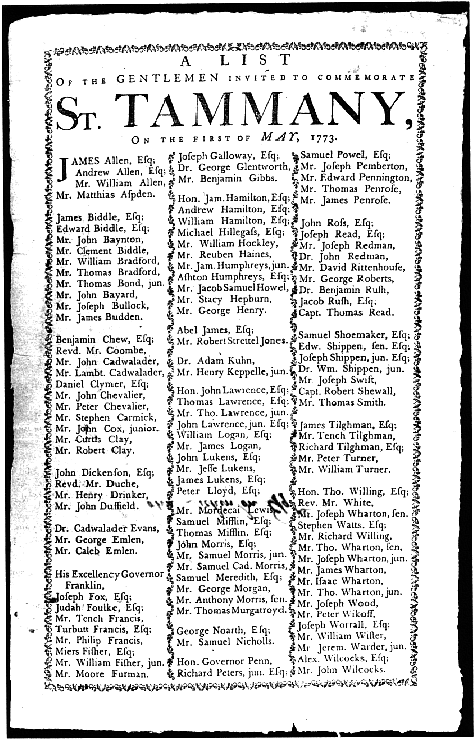 A LIST
OF THE GENTLEMEN INVITED TO COMMEMORATE
ST. TAMMANY,
ON THE FIRST OF MAY, 1773.
JAMES Allen, Esq;
Andrew Allen, Esq;
Mr. William Allen,
Mr. Matthias Aspden.
James Biddle, Esq;
Edward Biddle, Esq;
Mr. John Baynton,
Mr. Clement Biddle,
Mr. William Bradford,
Mr. Thomas Bradford,
Mr. Thomas Bond, jun.
Mr. John Bayard,
Mr. Joseph Bullock,
Mr. James Budden.
Benjamin Chew, Esq;
Revd. Mr. Coombe,
Mr. John Cadwalader,
Mr. Lambt. Cadwalader,
Daniel Clymer, Esq;
Mr. John Chevalier,
Mr. Peter Chevalier,
Mr. Stephen Carmick,
Mr. John Cox, junior.
Mr. Curtis Clay,
Mr. Robert Clay.
John Dickenson, Esq;
Revd. Mr. Duche,
Mr. Henry Drinker,
Mr. John Duffield.
Dr. Cadwalader Evans,
Mr. George Emlen,
Mr. Caleb Emlen.
His Excellency Governor
Franklin,
Joseph Fox, Esq;
Judah Foulke, Esq;
Mr. Tench Francis,
Turbutt Francis, Esq;
Mr. Philip Francis,
Miers Fisher, Esq;
Mr. William Fisher, jun.
Mr. Moore Furman.
Joseph Galloway, Esq;
Dr. George Glentworth,
Mr. Benjamin Gibbs.
Hon. Jam. Hamilton, Esq;
Andrew Hamilton, Esq;
William Hamilton, Esq;
Michael Hillegass, Esq;
Mr. William Hockley,
Mr. Reuben Haines,
Mr. Jam. Humphreys, jun.
Ashton Humphreys, Esq;
Mr. Jacob Samuel Howel,
Mr. Stacy Hepburn,
Mr. George Henry.
Abel James, Esq;
Mr. Robert Strettel Jones.
Dr. Adam Kuhn,
Mr. Henry Keppelle, jun.
Hon. John Lawrence, Esq;
Thomas Lawrence, Esq;
Mr. Tho. Lawrence, jun.
John Lawrence, jun. Esq;
William Logan, Esq;
Mr. James Logan,
John Lukens, Esq;
Mr. Jesse Lukens,
James Lukens, Esq;
Peter Lloyd, Esq;
Mr. Mordecai Lewis.
Samuel Mifflin, Esq;
Thomas Mifflin, Esq;
John Morris, Esq;
Mr. Samuel Morris, jun.
Mr. Samuel Cad. Morris,
Samuel Meredith, Esq;
Mr. George Morgan,
Mr. Anthony Morris, sen.
Mr. Thomas Murgatroyd.
George Noarth, Esq;
Mr. Samuel Nicholls.
Hon. Governor Penn,
Richard Peters, jun. Esq;
Samuel Powell, Esq;
Mr. Joseph Pemberton,
Mr. Edward Pennington,
Mr. Thomas Penrose,
Mr. James Penrose.
John Ross, Esq;
Joseph Read, Esq;
Mr. Joseph Redman,
Dr. John Redman,
Mr. David Rittenhouse,
Mr. George Roberts,
Dr. Benjamin Rush,
Jacob Rush, Esq;
Capt. Thomas Read.
Samuel Shoemaker, Esq;
Edw. Shippen, sen. Esq;
Joseph Shippen, jun. Esq;
Dr. Wm. Shippen, jun.
Mr. Joseph Swift,
Capt. Robert Shewall,
Mr. Thomas Smith.
James Tilghman, Esq;
Mr. Tench Tilghman,
Richard Tilghman, Esq;
Mr. Peter Turner,
Mr. William Turner.
Hon. Tho. Willing, Esq;
Rev. Mr. White,
Mr. Joseph Wharton, sen.
Stephen Watts. Esq;
Mr. Richard Willing,
Mr. Tho. Wharton, sen.
Mr. Joseph Wharton, jun.
Mr. James Wharton,
Mr. Isaac Wharton,
Mr. Tho. Wharton, jun.
Mr. Joseph Wood,
Mr. Peter Wikoff,
Joseph Worrall, Esq;
Mr. William Wister,
Mr. Jerem. Warder, jun.
Alex. Wilcocks, Esq;
Mr. John Wilcocks.